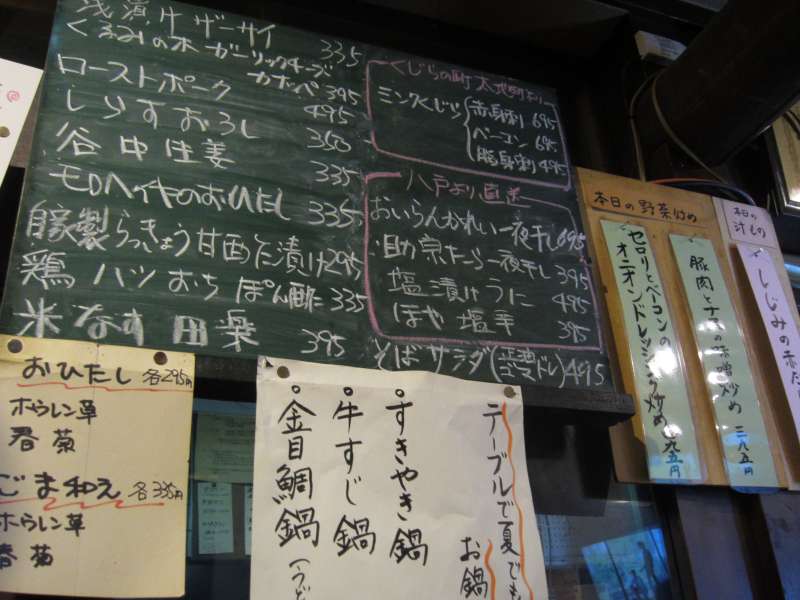 浅漬け ザーサイ 335
くるみの木 ガーリックチーズ
カナッペ 395
ローストポーク 495
しらすおろし 350
谷中生姜 335
モロヘイヤのおひたし 335
自家製らっきょう甘酢漬け 295
鶏ハツおろしぽん酢 335
米なす田楽 395
くじらの町 太地町より
ミンクくじら
赤身刺 695
ベーコン 695
八戸より直送
おいらんかれい一夜干し 695
助宗たら一夜干し 395
塩漬けうに 495
ほや塩辛 395
そばサラダ 495
本日の野菜炒め
セロリとベーコンの
オニオンドレッシング炒め
豚肉とナスの味噌炒め 三九五円
本日の汁もの
しじみの赤だ
おひたし 各295円
ホウレン草
春菊
ごま和え 各335円
ホウレン草
春菊
テーブルで夏でも
お鍋
•すきやき鍋
•牛すじ鍋
•金目鯛鍋
(うど